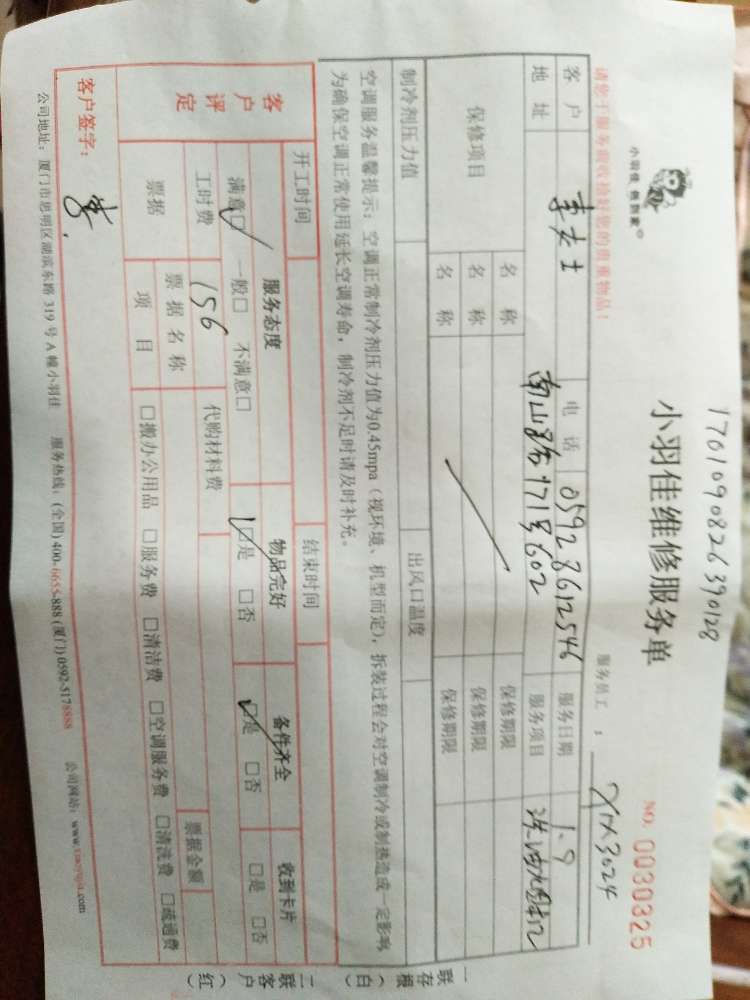 1701090826390128
小羽佳 他到家
小羽佳维修服务单
NO. 0030325
请您于服务前收捡好您的贵重物品！
服务员工：XM3024
客户 李女士 电话 0592 8612546 服务日期 1.9
地址 971号602 服务项目 洗油烟机
保修项目 名称 保修期限
名称 保修期限
名称 保修期限
制冷剂压力值 出风口温度
空调服务温馨提示：空调正常制冷剂压力值为0.45mpa（视环境、机型而定），拆装过程会对空调制冷或制热造成一定影响，
为确保空调正常使用延长空调寿命，制冷剂不足时请及时补充。
开工时间 结束时间
客户评定 服务态度 物品完好 备件齐全 收到卡片
满意□ 一般□ 不满意□ □是 □否 □是 □否 □是 □否
工时费 156 代购材料费
票据 票据名称 票据金额
项目 □搬办公用品 □服务费 □清洁费 □空调服务费 □清洗费 □疏通费
客户签字：李
公司地址：厦门市思明区湖滨东路 319 号 A 幢小羽佳 服务热线：(全国) 400-6655-888 (厦门) 0592-5178888 公司网站：www.xiaoyujia.com
一联存根（白）
二联客户（红）